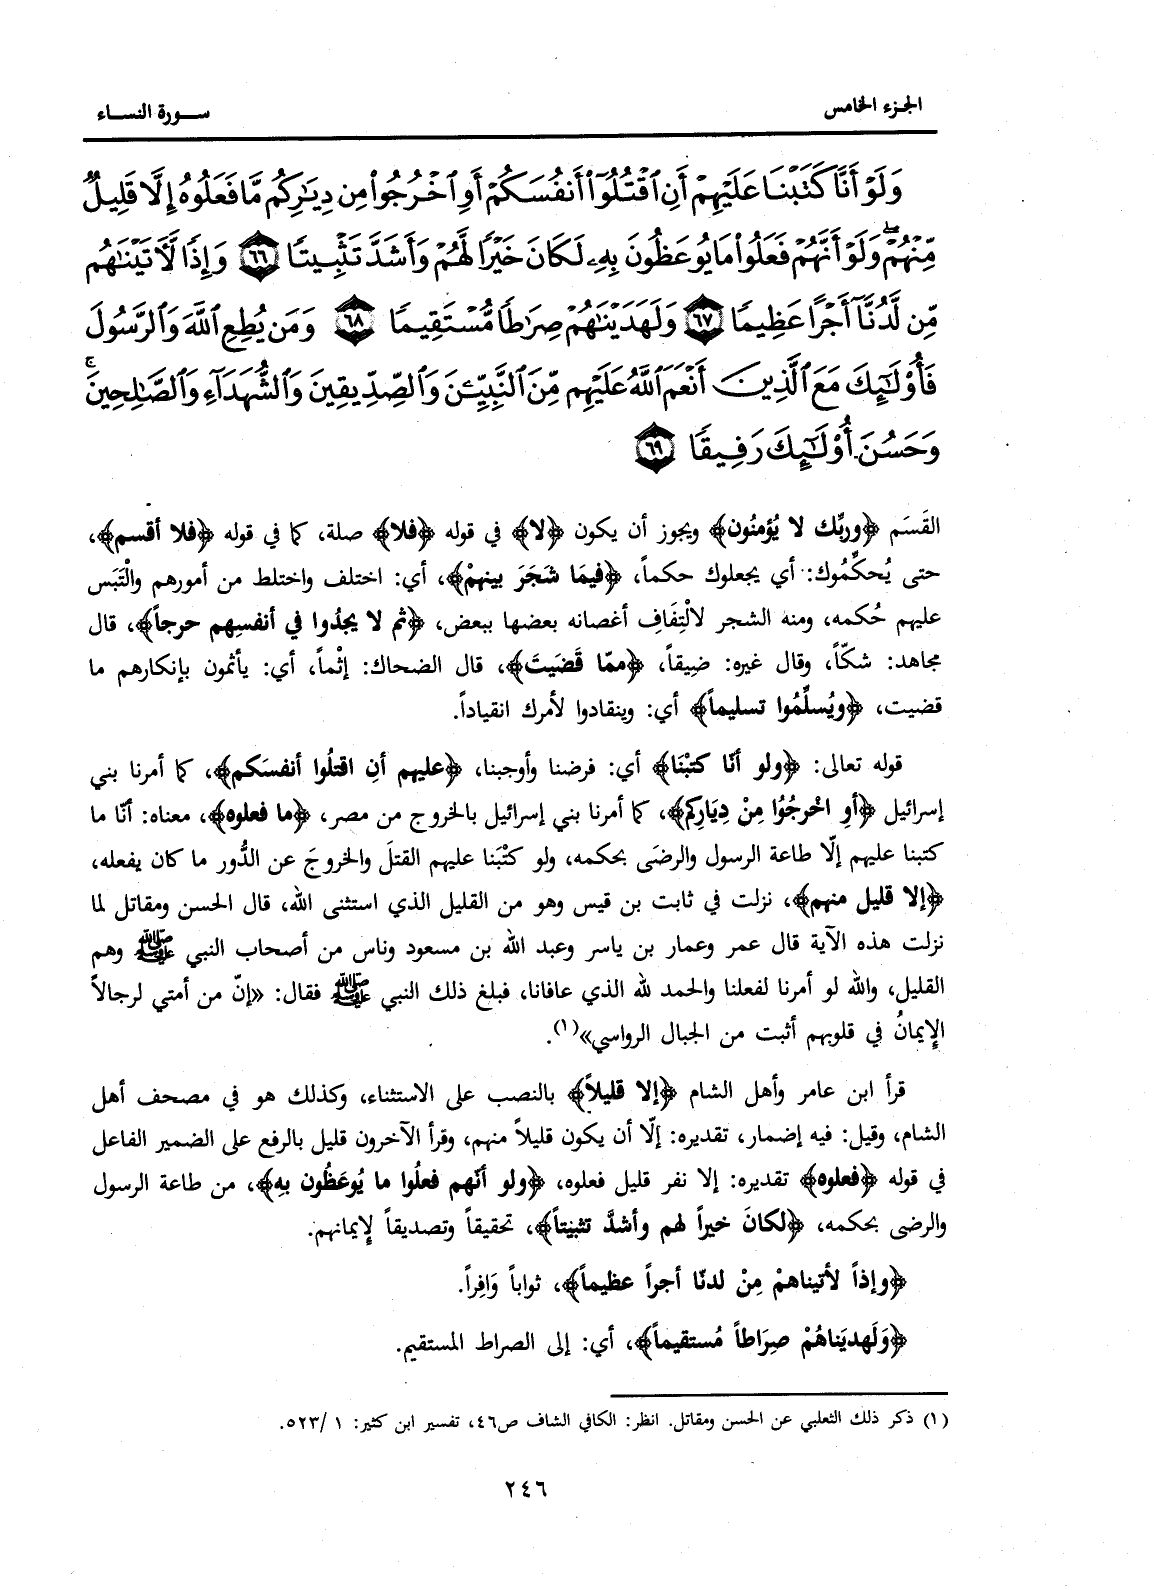 الجزء الخامس
سورة النساء
وَلَوْ أَنَّا كَتَبْنَا عَلَيْهِمْ أَنِ ٱقْتُلُوٓا۟ أَنفُسَكُمْ أَوِ ٱخْرُجُوا۟ مِن دِيَـٰرِكُم مَّا فَعَلُوهُ إِلَّا قَلِيلٌ
مِّنْهُمْ ۖ وَلَوْ أَنَّهُمْ فَعَلُوا۟ مَا يُوعَظُونَ بِهِۦ لَكَانَ خَيْرًا لَّهُمْ وَأَشَدَّ تَثْبِيتًا ٦٦ وَإِذًا لَّـَٔاتَيْنَـٰهُم
مِّن لَّدُنَّآ أَجْرًا عَظِيمًا ٦٧ وَلَهَدَيْنَـٰهُمْ صِرَٰطًا مُّسْتَقِيمًا ٦٨ وَمَن يُطِعِ ٱللَّهَ وَٱلرَّسُولَ
فَأُو۟لَـٰٓئِكَ مَعَ ٱلَّذِينَ أَنْعَمَ ٱللَّهُ عَلَيْهِم مِّنَ ٱلنَّبِيِّـۧنَ وَٱلصِّدِّيقِينَ وَٱلشُّهَدَآءِ وَٱلصَّـٰلِحِينَ ۚ
وَحَسُنَ أُو۟لَـٰٓئِكَ رَفِيقًا ٦٩
القَسَم ﴿وربِّك لا يُؤمنُون﴾ ويجوز أن يكون ﴿لا﴾ في قوله ﴿فلا﴾ صلة، كما في قوله ﴿فلا أقسم﴾،
حتى يُحكِّمُوك: أي يجعلوك حكماً، ﴿فيمَا شَجَرَ بينهمْ﴾، أي: اختلف واختلط من أمورهم والْتَبَس
عليهم حُكمه، ومنه الشجر لالْتِفَافِ أغصانه بعضها ببعض، ﴿ثم لا يجدُوا في أنفسِهم حرجاً﴾، قال
مجاهد: شكّاً، وقال غيره: ضِيقاً، ﴿ممّا قَضَيتَ﴾، قال الضحاك: إثْماً، أي: يأثمون بإنكارهم ما
قضيت، ﴿ويُسلِّمُوا تسليماً﴾ أي: وينقادوا لأمرك انقياداً.
قوله تعالى: ﴿ولو أنّا كتبْنَا﴾ أي: فرضنا وأوجبنا، ﴿عليهم أنِ اقتلُوا أنفسَكم﴾، كما أمرنا بني
إسرائيل ﴿أوِ اخْرجُوُا مِنْ دِيَارِكم﴾، كما أمرنا بني إسرائيل بالخروج من مصر، ﴿ما فعلوه﴾، معناه: أنّا ما
كتبنا عليهم إلّا طاعة الرسول والرضَى بحكمه، ولو كتْبَنا عليهم القتلَ والخروجَ عن الدُّور ما كان يفعله،
﴿إلا قليل منهم﴾، نزلت في ثابت بن قيس وهو من القليل الذي استثنى الله، قال الحسن ومقاتل لما
نزلت هذه الآية قال عمر وعمار بن ياسر وعبد الله بن مسعود وناس من أصحاب النبي ﷺ وهم
القليل، والله لو أمرنا لفعلنا والحمد لله الذي عافانا، فبلغ ذلك النبي ﷺ فقال: «إنّ من أمتي لرجالاً
الإيمانُ في قلوبهم أثبت من الجبال الرواسي»(١).
قرأ ابن عامر وأهل الشام ﴿إلا قليلاً﴾ بالنصب على الاستثناء، وكذلك هو في مصحف أهل
الشام، وقيل: فيه إضمار، تقديره: إلّا أن يكون قليلاً منهم، وقرأ الآخرون قليل بالرفع على الضمير الفاعل
في قوله ﴿فعلوه﴾ تقديره: إلا نفر قليل فعلوه، ﴿ولو أنّهم فعلُوا ما يُوعَظُون بهِ﴾، من طاعة الرسول
والرضى بحكمه، ﴿لكانَ خيراً لهم وأشدَّ تثبيتاً﴾، تحقيقاً وتصديقاً لإيمانهم.
﴿وإذاً لأتيناهمْ مِنْ لدنّا أجراً عظيماً﴾، ثواباً وَافِراً.
﴿وَلَهديَناهُمْ صِرَاطاً مُستقيماً﴾، أي: إلى الصراط المستقيم.
(١) ذكر ذلك الثعلبي عن الحسن ومقاتل. انظر: الكافي الشاف ص٤٦، تفسير ابن كثير: ١ /٥٢٣.
٢٤٦